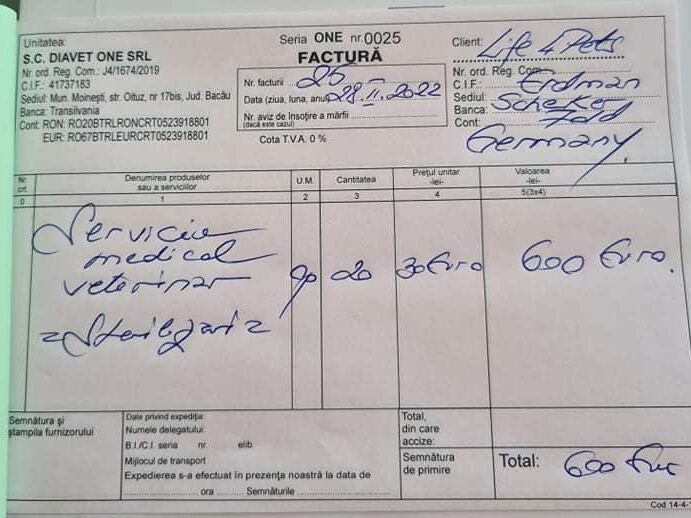 Unitatea:
S.C. DIAVET ONE SRL
Nr. ord. Reg. Com.: J4/1674/2019
C.I.F.: 41737183
Sediul: Mun. Moinești, str. Oituz, nr 17bis, Jud. Bacău
Banca: Transilvania
Cont: RON: RO20BTRLRONCRT0523918801
EUR: RO67BTRLEURCRT0523918801
Seria ONE nr. 0025
FACTURĂ
Nr. facturii 25
Data (ziua, luna, anul) 28.II.2022
Nr. aviz de însoțire a mărfii
(dacă este cazul)
Cota T.V.A. 0 %
Client: Life 4 Pets
Nr. ord. Reg. Com.
C.I.F.: Erdman
Sediul:
Banca:
Cont:
Germany
Nr. crt.
Denumirea produselor sau a serviciilor
U.M.
Cantitatea
Prețul unitar -lei-
Valoarea -lei-
0 1 2 3 4 5(3x4)
Servicii
medical
veterinar 20 30 Euro 600 Euro.
Semnătura și
ștampila furnizorului
Date privind expediția:
Numele delegatului:
B.I./C.I. seria nr. elib.
Mijlocul de transport
Expedierea s-a efectuat în prezența noastră la data de
ora Semnăturile
Total,
din care
accize:
Semnătura
de primire
Total: 600 Eur
Cod 14-4-